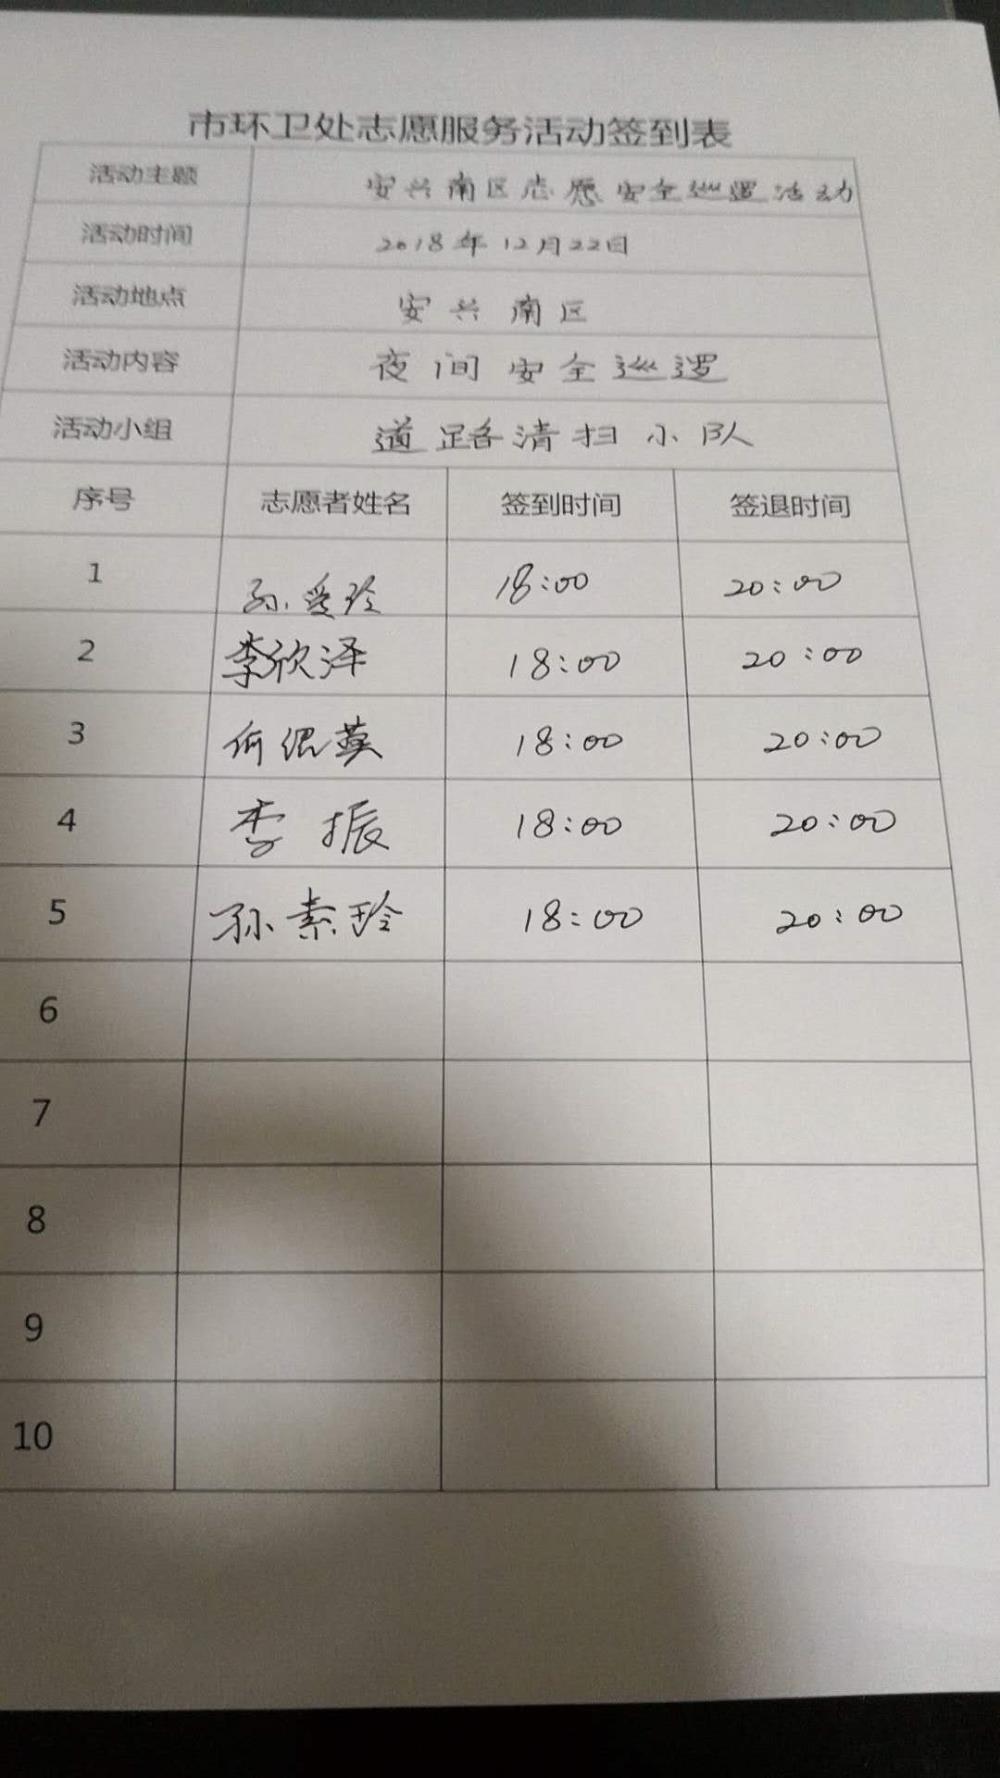 市环卫处志愿服务活动签到表
活动主题 安兴南区志愿安全巡逻活动
活动时间 2018年12月22日
活动地点 安兴南区
活动内容 夜间安全巡逻
活动小组 道路清扫小队
序号 志愿者姓名 签到时间 签退时间
1 孙爱玲 18:00 20:00
2 李欣泽 18:00 20:00
3 何 英 18:00 20:00
4 李振 18:00 20:00
5 孙素玲 18:00 20:00
6
7
8
9
10